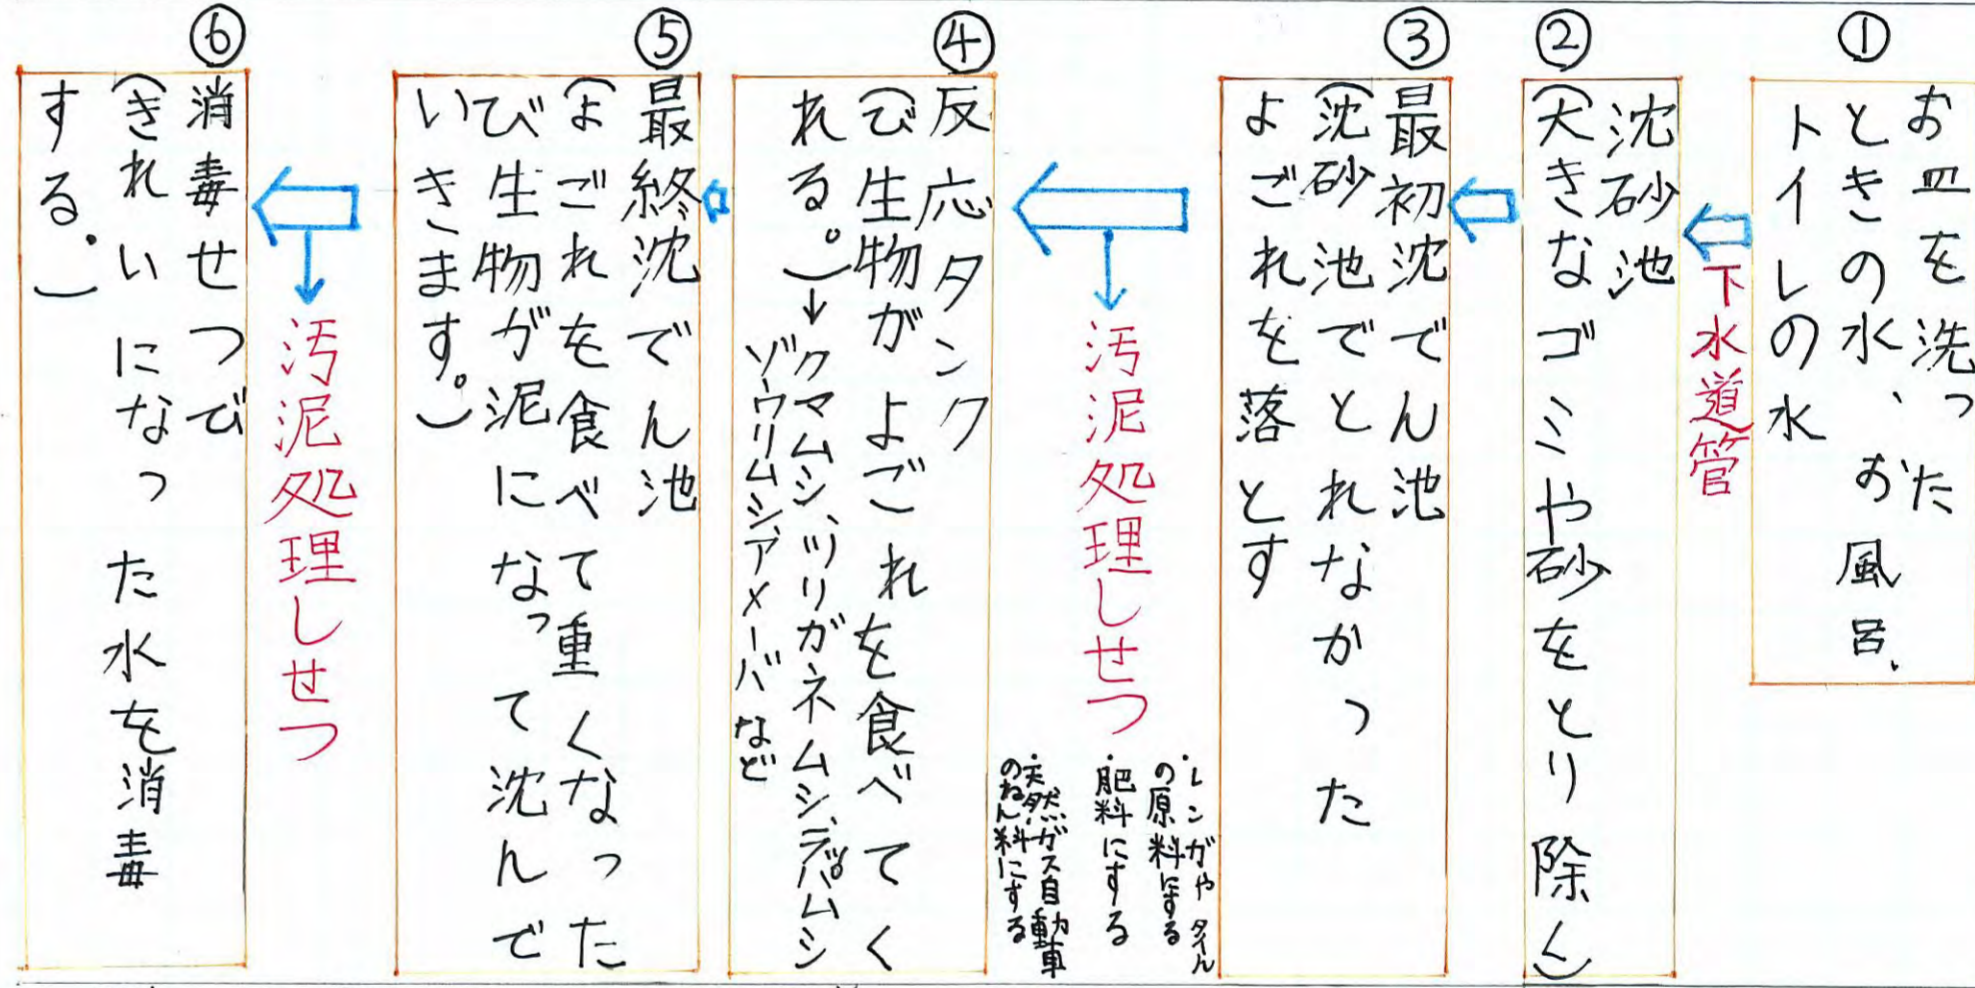 ①
お皿を洗った
ときの水、お風呂、
トイレの水
下水道管
②
沈砂池
(大きなゴミや砂をとり除く)
③
最初沈でん池
(沈砂池でとれなかった
よごれを落とす
汚泥処理しせつ
・レンガやタイル
の原料にする
・肥料にする
・天然ガス自動車
のねん料にする
④
反応タンク
(び生物がよごれを食べてく
れる。)→クマムシ、ツリガネムシ、ラッパムシ
ゾウリムシ、アメーバなど
⑤
最終沈でん池
(よごれを食べて重くなった
び生物が泥になって沈んで
いきます。)
汚泥処理しせつ
⑥
消毒せつび
(きれいになった水を消毒
する。)